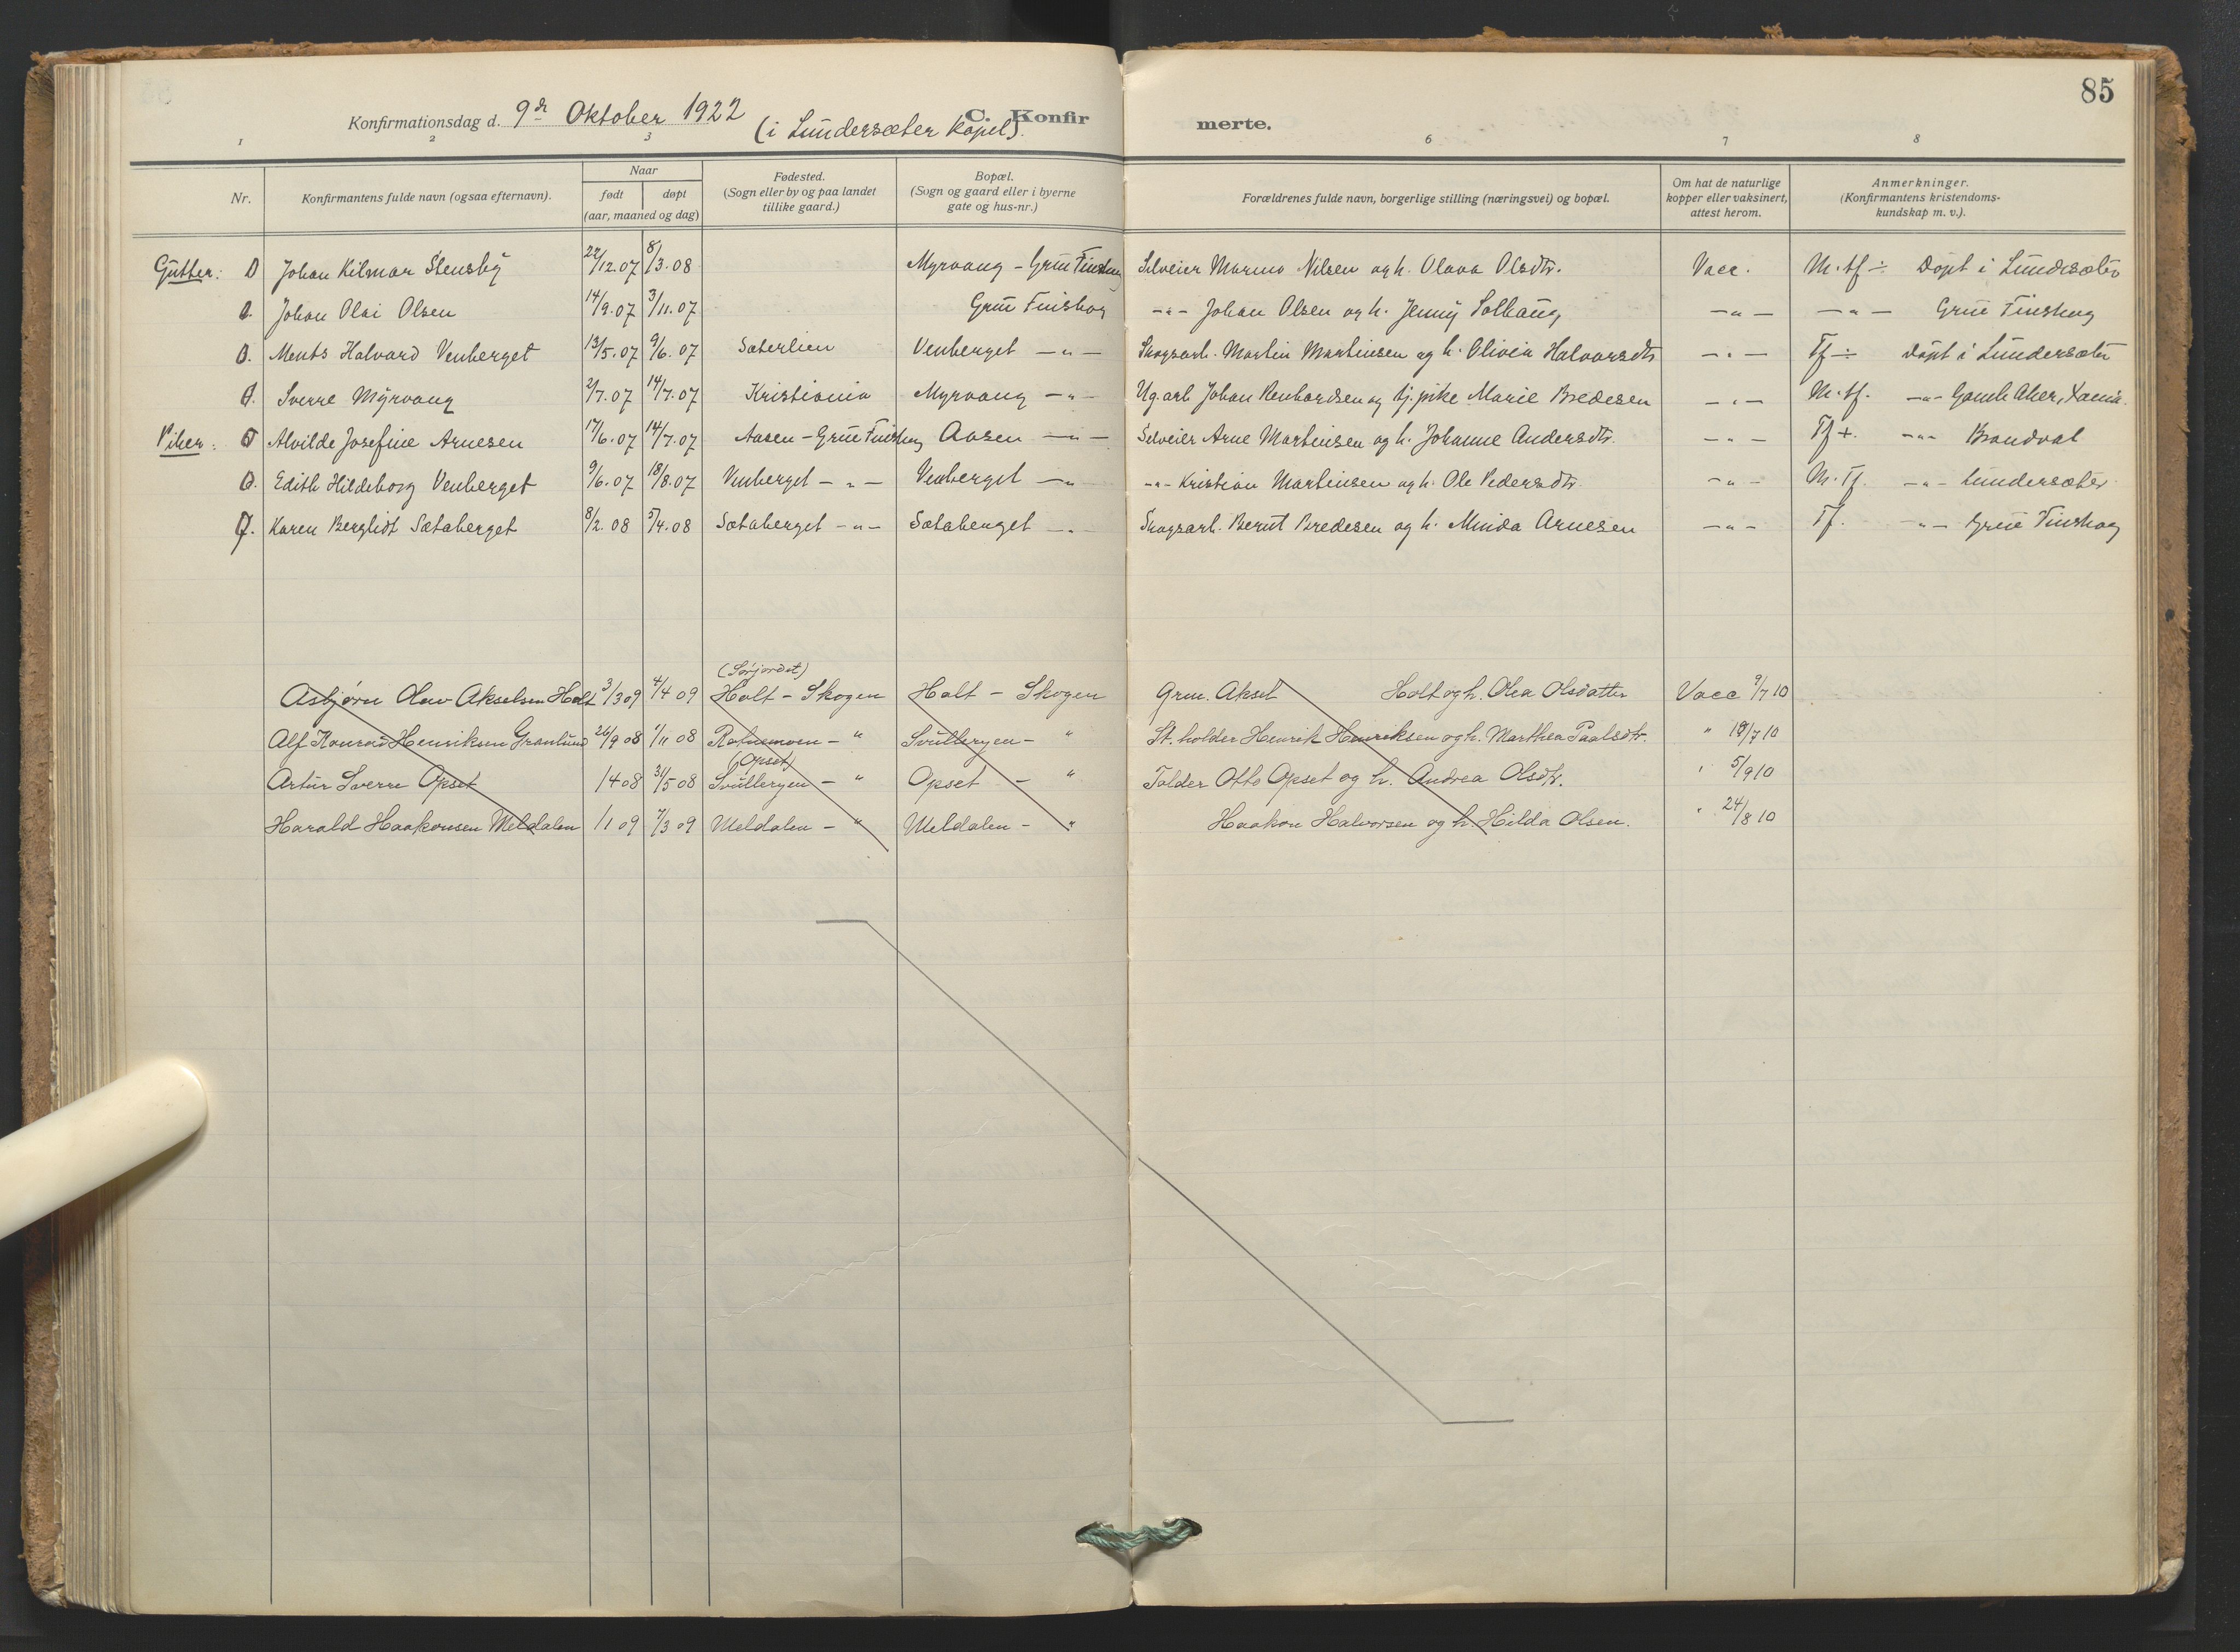 85
Konfirmationsdag d. 9de Oktober 1922 C. Konfir merte.
(i Lundersæter kapel).
1 2 3 6 7 8
Nr. Konfirmantens fulde navn (ogsaa efternavn). Naar født døpt (aar, maaned og dag) Fødested. (Sogn eller by og paa landet tillike gaard.) Bopæl. (Sogn og gaard eller i byerne gate og hus-nr.) Forældrenes fulde navn, borgerlige stilling (næringsvei) og bopæl. Om hat de naturlige kopper eller vaksinert, attest herom. Anmerkninger. (Konfirmantens kristendoms-kundskap m. v.).
Gutter: Johan Hilmar Stensby 22/12.07 8/3.08 Myrvang - Grue Finskog Selveier Marino Nilsen og h. Olava Olsdtr. Vacc. M.tf ÷ Døpt i Lundersæter
Johan Olai Olsen 14/9.07 3/11.07 Grue Finskog -"- Johan Olsen og h. Jenny Solbaug -"- -"- Grue Finskog
Ments Halvard Venberget 13/5.07 9/6.07 Sæterlien Venberget -"- Skogsarb. Martin Martinsen og h. Olivia Halvorsdtr -"- Tf ÷ Døpt i Lundersæter
Sverre Myrvang 2/7.07 14/7.07 Kristiania Myrvang -"- Ug. arb Johan Renhardsen og tj.pike Marie Bredesen -"- M.tf. -"- Gamle Aker, Xania.
Piker: Alvilde Josefine Arnesen 17/6.07 14/7.07 Aasen - Grue Finskog Aasen -"- Selveier Arne Martinsen og h. Johanne Andersdtr. -"- Tf +. -"- Brandval
Edith Hildeborg Venberget 9/6.07 18/8.07 Venberget -"- Venberget -"- -"- Kristian Martinsen og h. Ole Pedersdtr -"- M.Tf. -"- Lundersæter
Karen Bergliot Sætaberget 8/2.08 5/4.08 Sætaberget -"- Sætaberget -"- Skogsarb. Bernt Bredesen og h. Minda Arnesen -"- Tf. -"- Grue Finskog
(Sørjordet)
Asbjørn Olav Akselsen Holt 3/3 09 4/4 09 Holt - Skogen Holt - Skogen Grm. Aksel Holt og h. Olea Olsdatter Vacc 9/7 10
Alf Konrad Henriksen Granlund 26/9 08 1/11 08 Rotnemoen - " Svulleryen - " St. holder Henrik Henriksen og h. Marthea Paalsdtr. " 18/7 10
(Opset)
Artur Sverre Opset 1/4 08 31/5 08 Svulleryen - " Opset - " Tolder Otto Opset og h. Andrea Olsdtr. " 5/9 10
Harald Haakonsen Meldalen 1/1 09 7/3 09 Meldalen - " Meldalen - " Haakon Halvorsen og h. Hilda Olsen. " 24/8 10